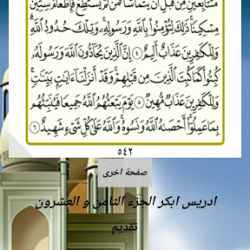 مُتَتَابِعَيْنِ مِن قَبْلِ أَن يَتَمَآسَّا فَمَن لَّمْ يَسْتَطِعْ فَإِطْعَامُ سِتِّينَ
مِسْكِينًا ذَٰلِكَ لِتُؤْمِنُوا۟ بِٱللَّهِ وَرَسُولِهِۦ وَتِلْكَ حُدُودُ ٱللَّهِ
وَلِلْكَٰفِرِينَ عَذَابٌ أَلِيمٌ ٤ إِنَّ ٱلَّذِينَ يُحَآدُّونَ ٱللَّهَ وَرَسُولَهُۥ
كُبِتُوا۟ كَمَا كُبِتَ ٱلَّذِينَ مِن قَبْلِهِمْ وَقَدْ أَنزَلْنَآ ءَايَٰتٍۭ بَيِّنَٰتٍ
وَلِلْكَٰفِرِينَ عَذَابٌ مُّهِينٌ ٥ يَوْمَ يَبْعَثُهُمُ ٱللَّهُ جَمِيعًا فَيُنَبِّئُهُم
بِمَا عَمِلُوٓا۟ أَحْصَىٰهُ ٱللَّهُ وَنَسُوهُ وَٱللَّهُ عَلَىٰ كُلِّ شَىْءٍ شَهِيدٌ ٦
٥٤٢
صفحة اخرى
ادريس ابكر الجزء الثامن و العشرون
تقديم